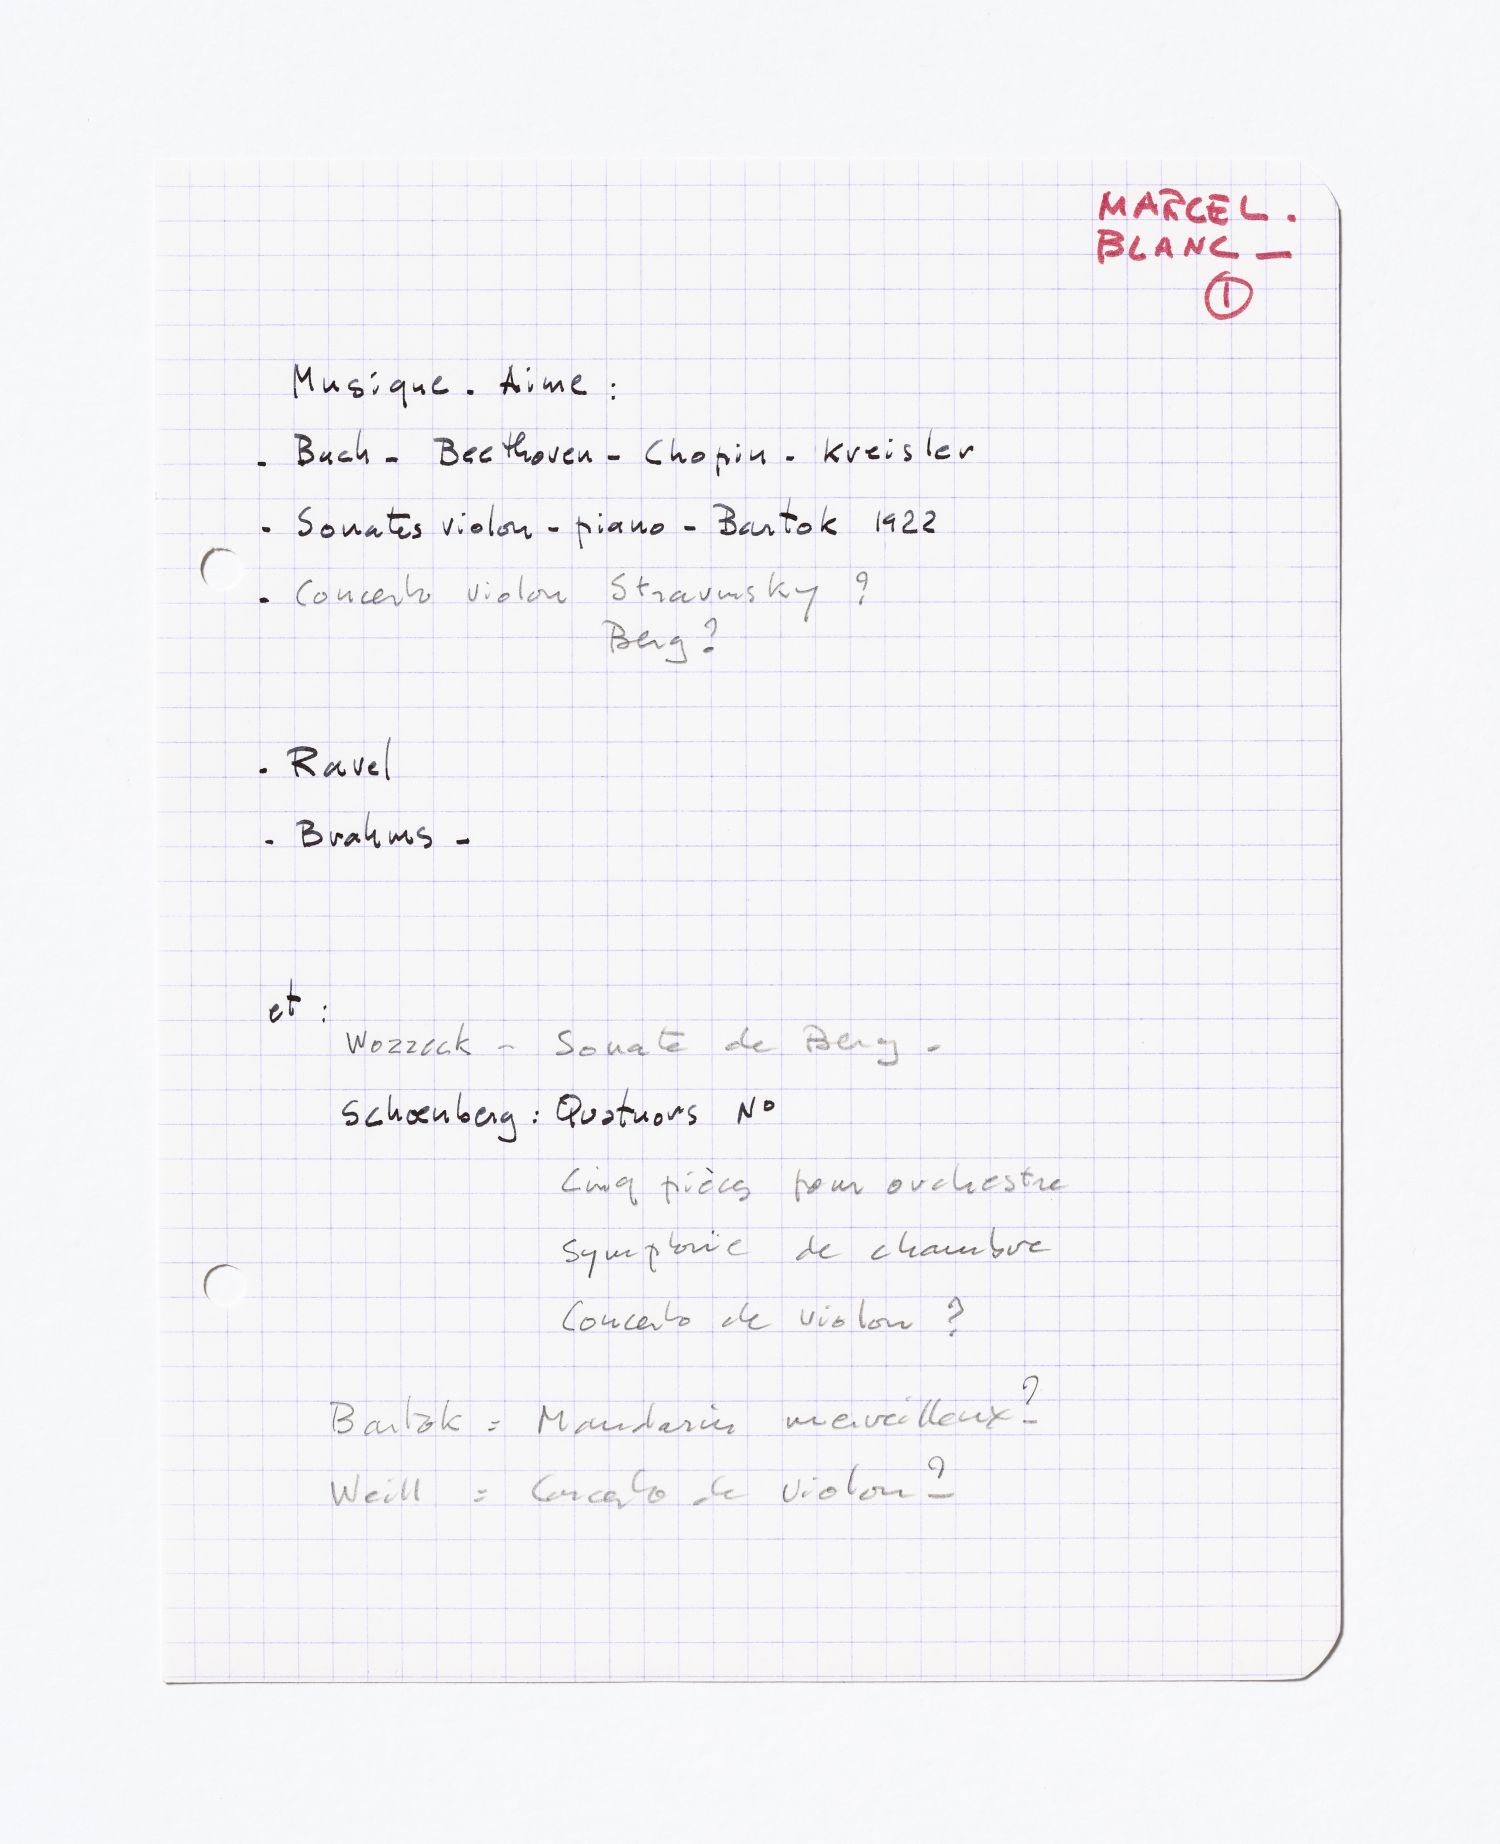 MARCEL.
BLANC —
①
Musique. Aime :
- Bach - Beethoven - Chopin - Kreisler
- Sonates violon - piano - Bartok 1922
- Concerto violon Stravinsky ?
Berg ?
- Ravel
- Brahms -
et :
Wozzeck - Sonate de Berg -
Schœnberg : Quatuors N°
Cinq pièces pour orchestre
Symphonie de chambre
Concerto de violon ?
Bartok = Mandarin merveilleux ? -
Weill = Concerto de violon ? -